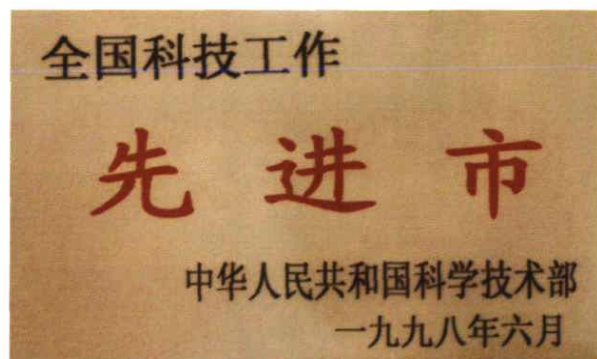 全国科技工作
先进市
中华人民共和国科学技术部
一九九八年六月